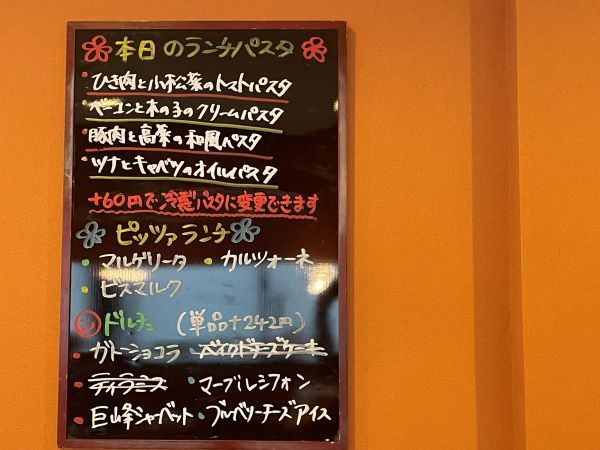 本日のランチパスタ
・ひき肉と小松菜のトマトパスタ
・ベーコンと木の子のクリームパスタ
・豚肉と高菜の和風パスタ
・ツナとキャベツのオイルパスタ
+60円で冷製パスタに変更できます
ピッツァランチ
・マルゲリータ ・カルツォーネ
・ビスマルク
ドルチェ (単品+242円)
・ガトーショコラ ・ベイクドチーズケーキ
・ティラミス ・マーブルシフォン
・巨峰シャーベット ・ブルーベリーチーズアイス